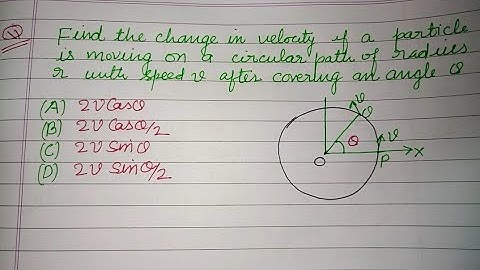 Q
Find the change in velocity if a particle
is moving on a circular path of radius
r with speed v after covering an angle θ
(A) 2v Cosθ
(B) 2v Cosθ/2
(C) 2v Sinθ
(D) 2v Sinθ/2
v
Q
v
θ
O
P
X